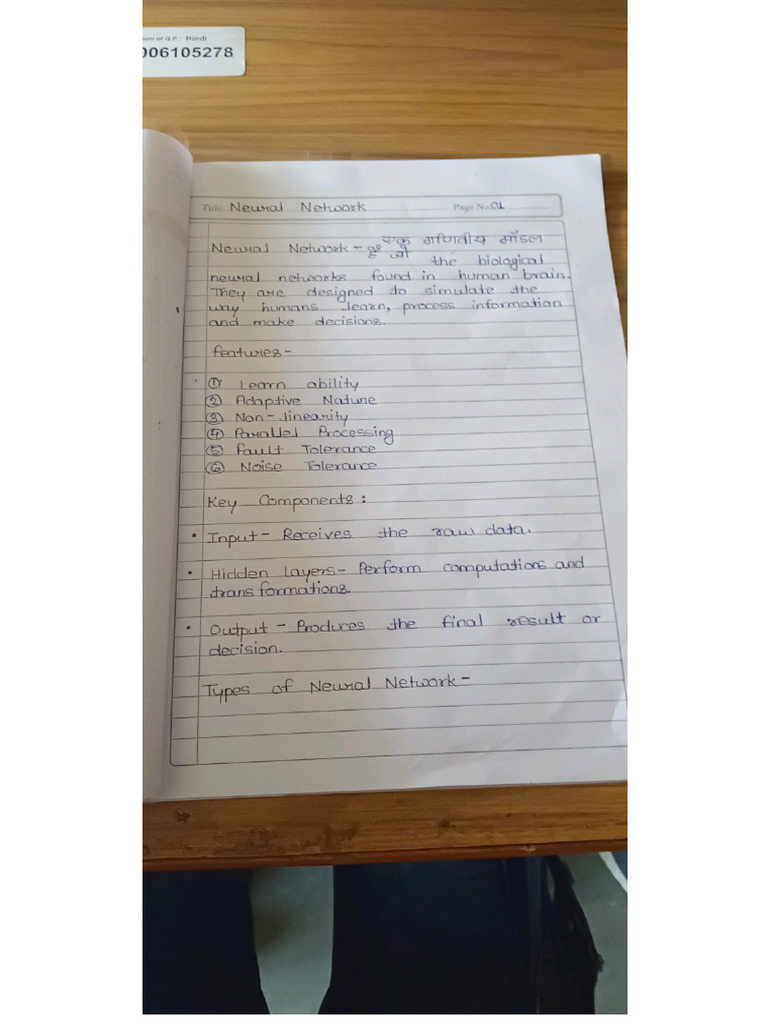 ion of Q.P. Hindi
006105278
Title Neural Network Page No. 01
Neural Network - एक गणितीय मॉडल
है जो the biological
neural networks found in human brain.
They are designed to simulate the
way humans learn, process information
and make decisions.
features -
① Learn ability
② Adaptive Nature
③ Non-linearity
④ Parallel Processing
⑤ Fault Tolerance
⑥ Noise Tolerance
Key Components :
• Input - Receives the raw data.
• Hidden Layers - Perform computations and
transformations.
• Output - Produces the final result or
decision.
Types of Neural Network -